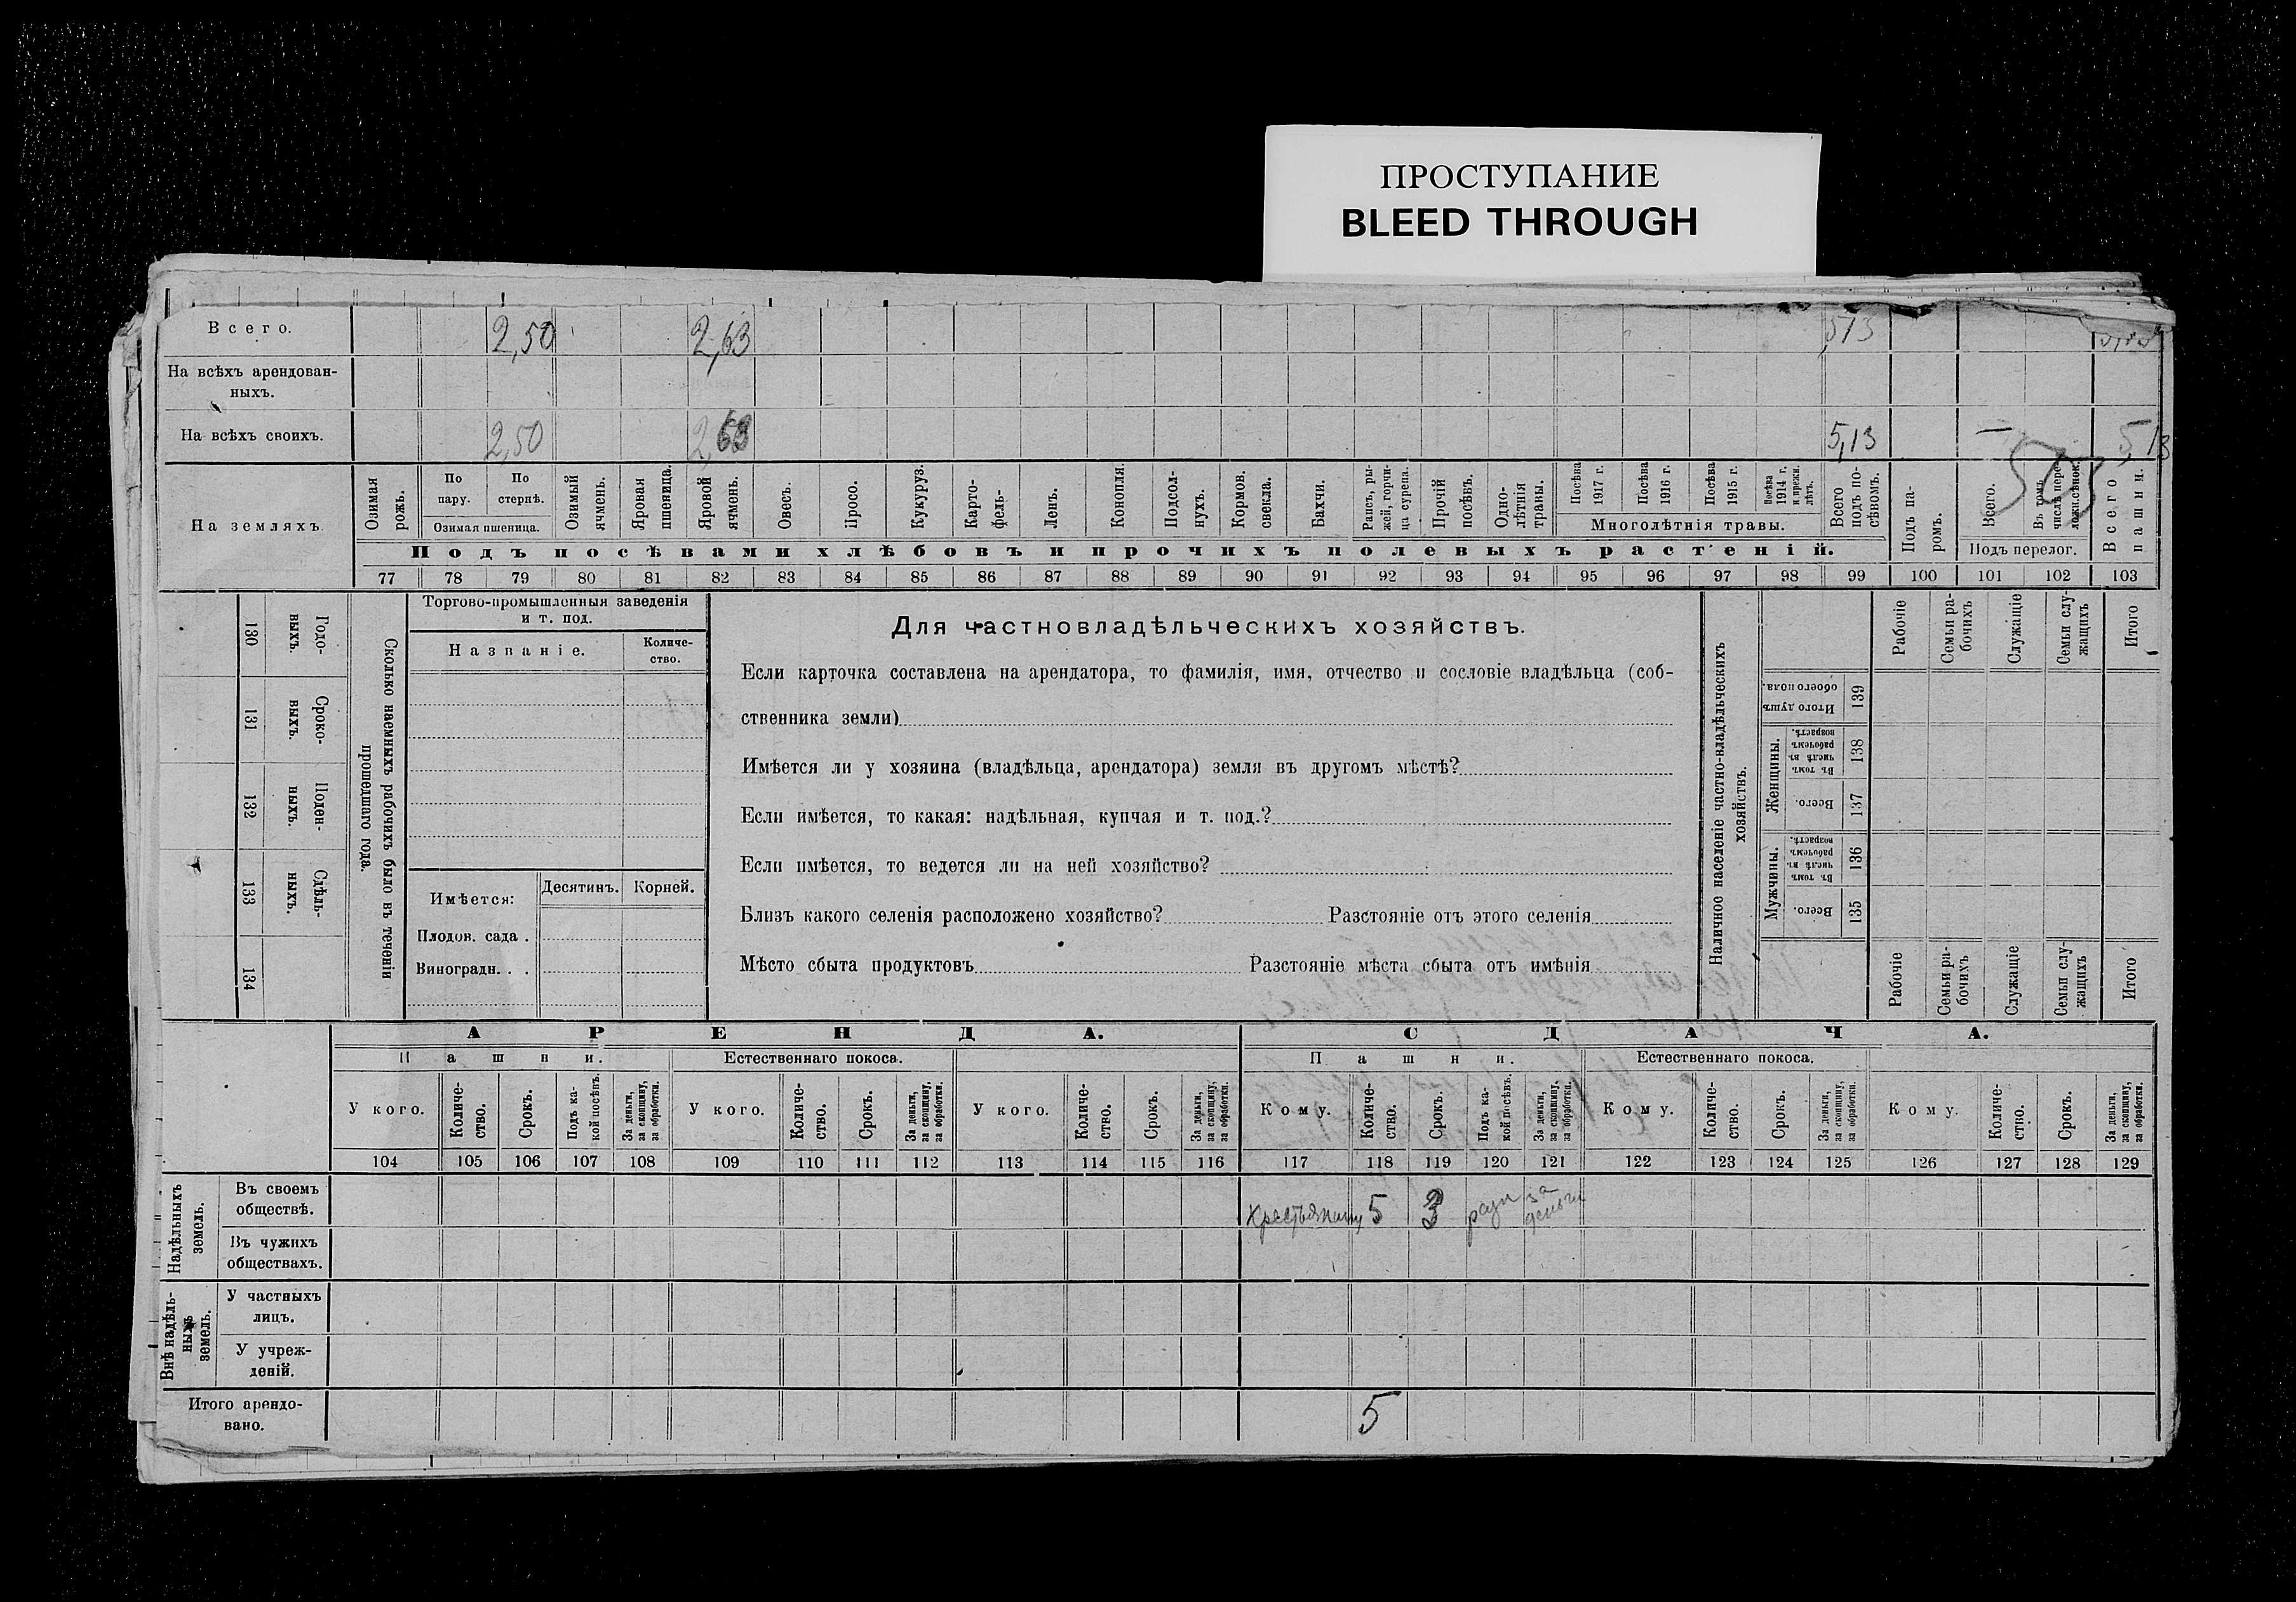 ПРОСТУПАНИЕ
BLEED THROUGH
Всего. 2,50 2,63 5,13
На всѣхъ арендован-
ныхъ.
На всѣхъ своихъ. 2,50 2,63 5,13 — 5,13
На земляхъ.
Озимая рожь.
По пару.
По стернѣ.
Озимая пшеница.
Озимый ячмень.
Яровая пшеница.
Яровой ячмень.
Овесъ.
Просо.
Кукуруз.
Карто-
фель-
Ленъ.
Конопля.
Подсол-
нухъ.
Кормов.
свекла.
Бахчи.
Рапсъ, ры-
жей, горчи-
ца сурепа.
Прочій
посѣвъ.
Одно-
лѣтнія
травы.
Посѣва
1917 г.
Посѣва
1916 г.
Посѣва
1915 г.
Посѣва
1914 г.
и прежн.
лѣтъ.
Многолѣтнія травы.
Всего
подъ по-
сѣвомъ.
Подъ па-
ромъ.
Всего.
Въ томъ
числѣ пере-
Подъ перелог.
Всего
пашни.
Подъ посѣвами хлѣбовъ и прочихъ полевыхъ растеній.
77 78 79 80 81 82 83 84 85 86 87 88 89 90 91 92 93 94 95 96 97 98 99 100 101 102 103
130 Годо-
ныхъ.
131 Сроко-
выхъ.
132 Поден-
ныхъ.
133 Сдѣль-
ныхъ.
134
Сколько наемныхъ рабочихъ было въ теченіи
прошедшаго года.
Торгово-промышленныя заведенія
и т. под.
Названіе.
Количе-
ство.
Имѣется:
Десятинъ. Корней.
Плодов. сада .
Виноградн. . .
Для частновладѣльческихъ хозяйствъ.
Если карточка составлена на арендатора, то фамилія, имя, отчество и сословіе владѣльца (соб-
ственника земли)
Имѣется ли у хозяина (владѣльца, арендатора) земля въ другомъ мѣстѣ?
Если имѣется, то какая: надѣльная, купчая и т. под.?
Если имѣется, то ведется ли на ней хозяйство?
Близъ какого селенія расположено хозяйство? Разстояніе отъ этого селенія
Мѣсто сбыта продуктовъ Разстояніе мѣста сбыта отъ имѣнія
Наличное населеніе частно-владѣльческихъ
хозяйствъ.
Рабочіе
Семьи ра-
бочихъ
Служащіе
Семьи слу-
жащихъ
Итого
Итого душъ
обоего пола.
139
Женщины.
Въ томъ
числѣ въ
рабочемъ
возрастѣ.
138
Всего.
137
Мужчины.
Въ томъ
числѣ въ
рабочемъ
возрастѣ.
136
Всего.
135
Рабочіе
Семьи ра-
бочихъ
Служащіе
Семьи слу-
жащихъ
Итого
АРЕНДА. СДАЧА.
Пашни. Естественнаго покоса. Пашни. Естественнаго покоса.
У кого.
Количе-
ство.
Срокъ.
Подъ ка-
кой посѣвъ.
За деньги,
за скопщину,
за обработки.
У кого.
Количе-
ство.
Срокъ.
За деньги,
за скопщину,
за обработки.
У кого.
Количе-
ство.
Срокъ.
За деньги,
за скопщину,
за обработки.
Кому.
Количе-
ство.
Срокъ.
Подъ ка-
кой посѣвъ.
За деньги,
за скопщину,
за обработки.
Кому.
Количе-
ство.
Срокъ.
За деньги,
за скопщину,
за обработки.
Кому.
Количе-
ство.
Срокъ.
За деньги,
за скопщину,
за обработки.
104 105 106 107 108 109 110 111 112 113 114 115 116 117 118 119 120 121 122 123 124 125 126 127 128 129
Надѣльныхъ
земель.
Въ своемъ
обществѣ.
Крестьянину 5 3 за
деньги
Въ чужихъ
обществахъ.
Внѣ надѣль-
ныхъ
земель.
У частныхъ
лицъ.
У учреж-
деній.
Итого арендо-
вано.
5